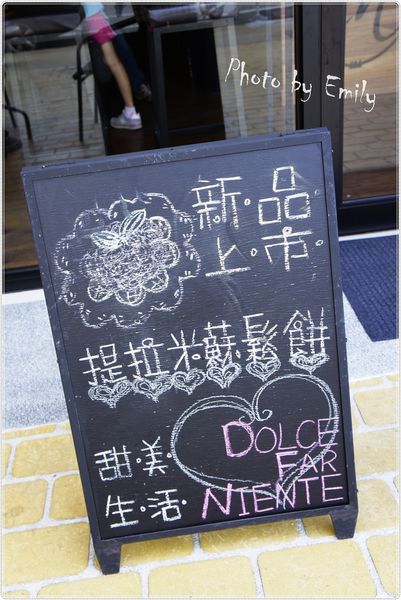 Photo by Emily
新品
上市
提拉米蘇鬆餅
甜美
生活
DOLCE
FAR
NIENTE